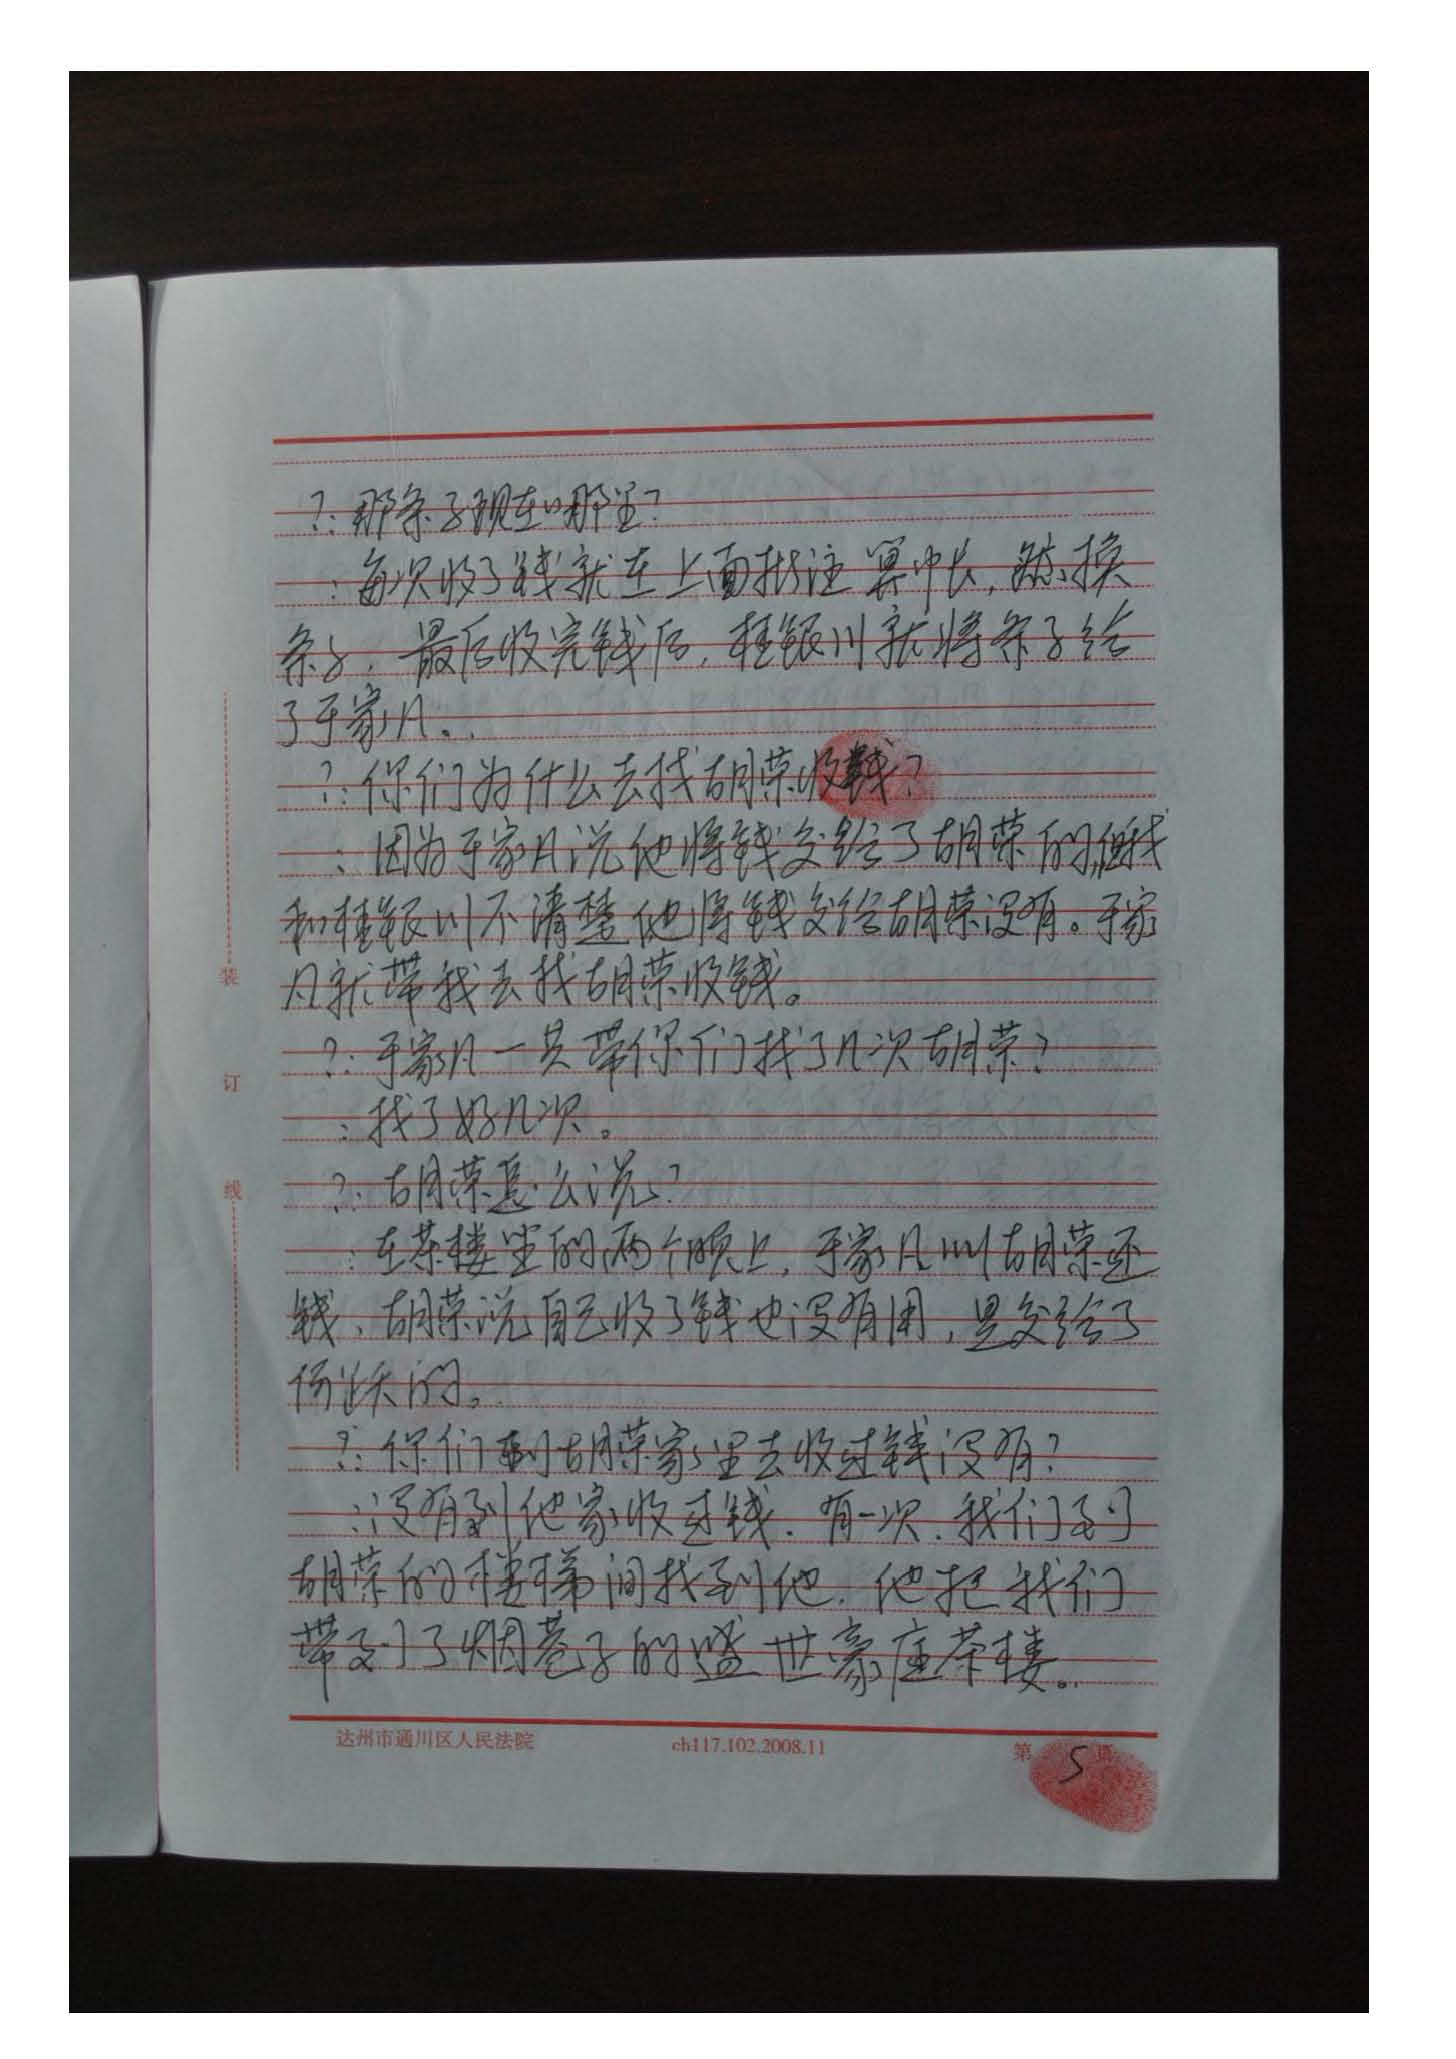 ?:那条子现在哪里?
:每次收了钱就在上面批注算冲长,就换
条子,最后收完钱后,桂银川就将条子给
了于家凡。
?:你们为什么去找胡荣收钱?
:因为于家凡说他将钱交给了胡荣的,但我
和桂银川不清楚他将钱交给胡荣没有。于家
凡就带我去找胡荣收钱。
?:于家凡一共带你们找了几次胡荣?
:找了好几次。
?:胡荣怎么说?
:在茶楼里的两个晚上,于家凡叫胡荣还
钱,胡荣说自己收了钱也没有用,是交给了
杨跃的。
?:你们到胡荣家里去收过钱没有?
:没有到他家收过钱.有一次.我们到
胡荣的楼梯间找到他.他把我们
带到了烟巷子的盛世豪庭茶楼。
装
订
线
达州市通川区人民法院 ch117.102.2008.11 第5页